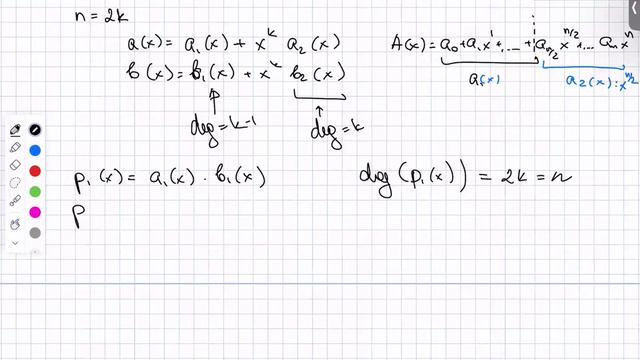 n = 2k
a(x) = a₁(x) + xᵏ a₂(x)
b(x) = b₁(x) + xᵏ b₂(x)
deg = k-1
deg = k
A(x) = a₀ + a₁x¹ + ... + a_{n/2} x^{n/2} + ... aₙ xⁿ
a₁(x)
a₂(x) : x^{n/2}
p₁(x) = a₁(x) · b₁(x)
deg(p₁(x)) = 2k = n
p